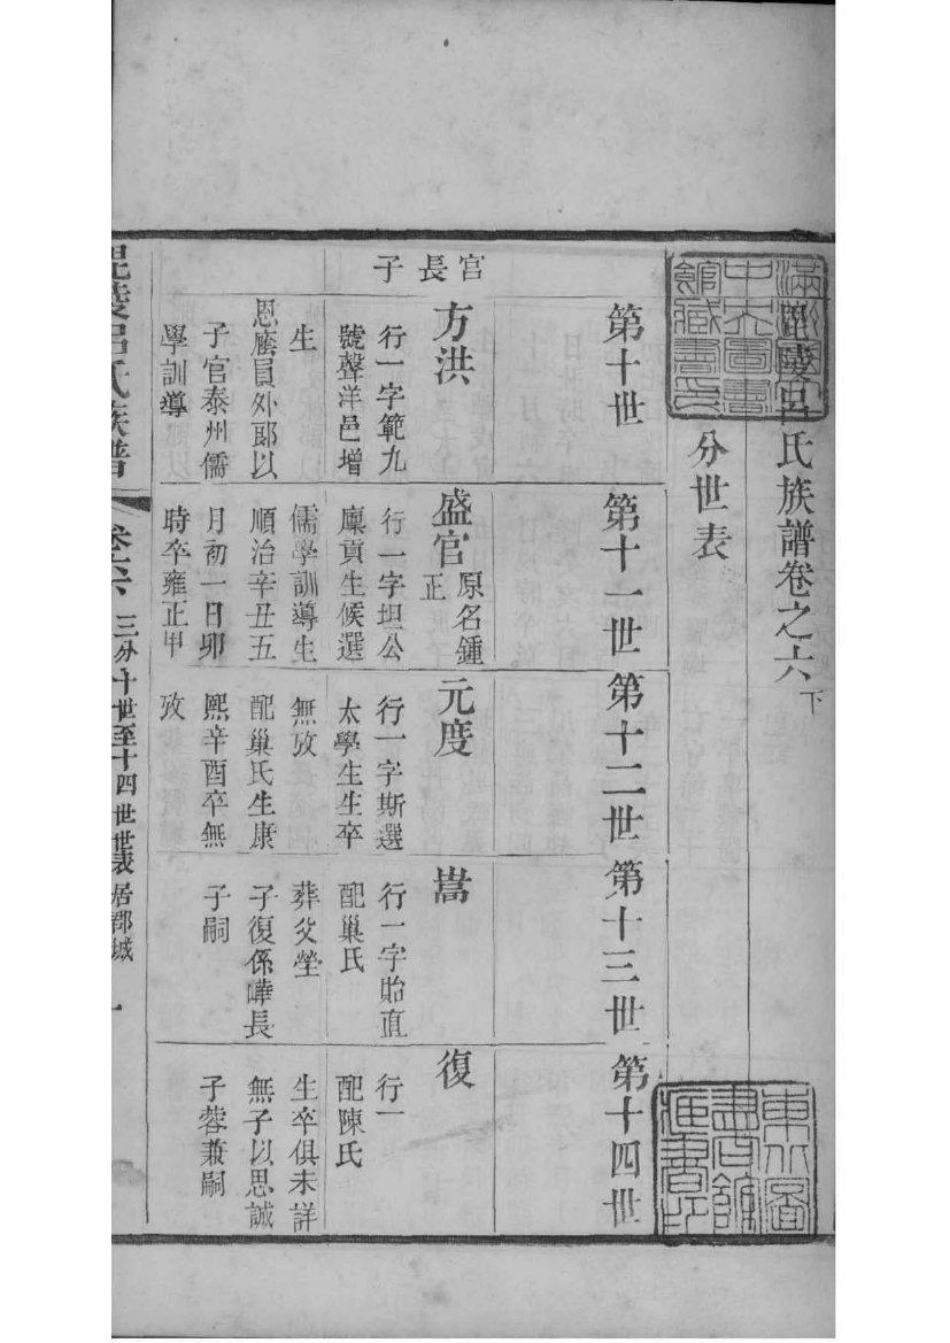 毘陵呂氏族譜卷之六下
分世表
第十世
第十一世
第十二世
第十三世
第十四世
官長子
方洪
行一字範九
號聲洋邑增
生
恩廕員外郎以
子官泰州儒
學訓導
盛官原名鍾
正
行一字坦公
廩貢生候選
儒學訓導生
順治辛丑五
月初一日卯
時卒雍正甲
元度
行一字斯選
太學生生卒
無攷
配巢氏生康
熙辛酉卒無
攷
嵩
行一字貽直
配巢氏
葬父塋
子復係曄長
子嗣
復
行一
配陳氏
生卒俱未詳
無子以思誠
子蓉兼嗣
毘陵呂氏族譜
卷六
三分十世至十四世世表居郡城
一